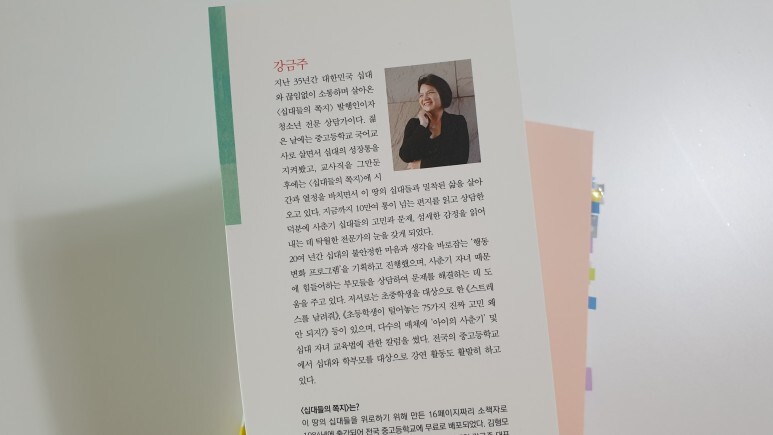 강금주
지난 35년간 대한민국 십대
와 끊임없이 소통하며 살아온
〈십대들의 쪽지〉 발행인이자
청소년 전문 상담가이다. 젊
은 날에는 중고등학교 국어교
사로 살면서 십대의 성장통을
지켜봤고, 교사직을 그만둔
후에는 〈십대들의 쪽지〉에 시
간과 열정을 바치면서 이 땅의 십대들과 밀착된 삶을 살아
오고 있다. 지금까지 10만여 통이 넘는 편지를 읽고 상담한
덕분에 사춘기 십대들의 고민과 문제, 섬세한 감정을 읽어
내는 데 탁월한 전문가의 눈을 갖게 되었다.
20여 년간 십대의 불안정한 마음과 생각을 바로잡는 '행동
변화 프로그램'을 기획하고 진행했으며, 사춘기 자녀 때문
에 힘들어하는 부모들을 상담하여 문제를 해결하는 데 도
움을 주고 있다. 저서로는 초중학생을 대상으로 한 《스트레
스를 날려줘》, 《초등학생이 털어놓는 75가지 진짜 고민 왜
안 되지?》 등이 있으며, 다수의 매체에 '아이의 사춘기' 및
십대 자녀 교육법에 관한 칼럼을 썼다. 전국의 중고등학교
에서 십대와 학부모를 대상으로 강연 활동도 활발히 하고
있다.
〈십대들의 쪽지〉는?
이 땅의 십대들을 위로하기 위해 만든 16페이지짜리 소책자로
1984년에 출간되어 전국 중고등학교에 무료로 배포되었다. 김형모